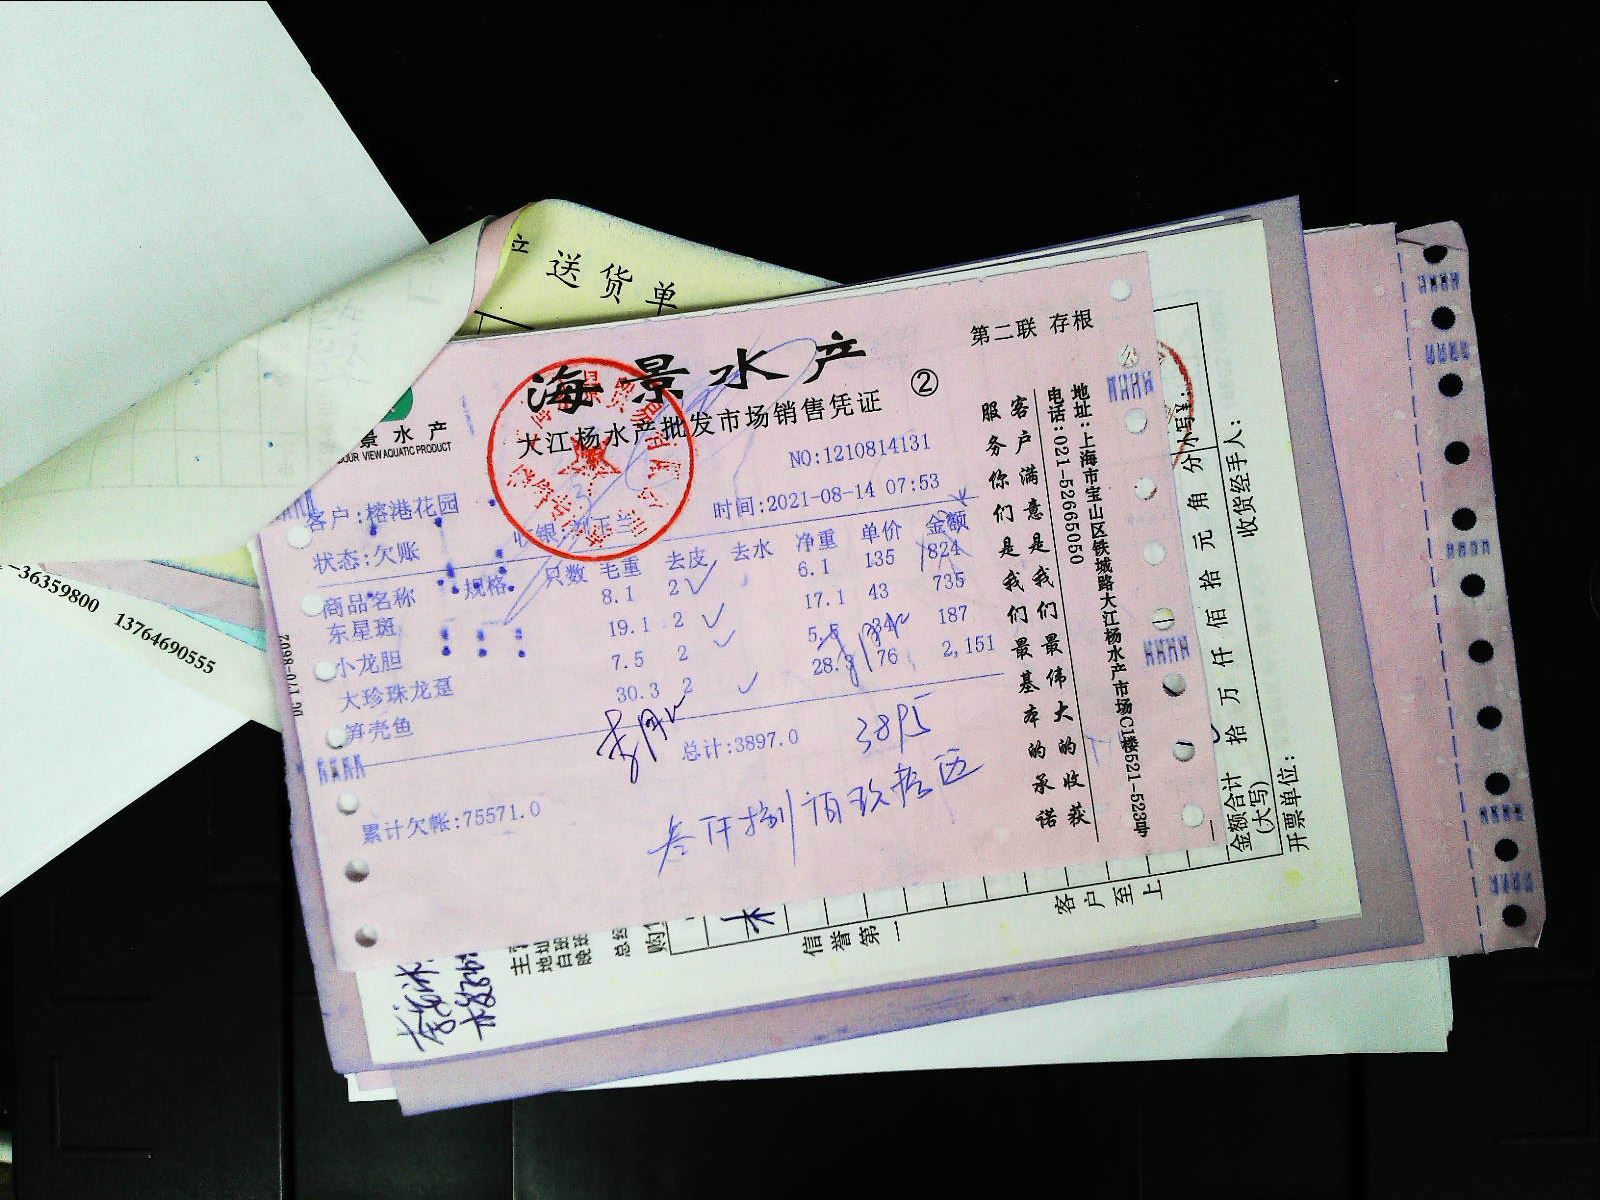 送货单
景水产
VIEW AQUATIC PRODUCT
-36359800 13764690555
第二联 存根
海景水产
②
大江杨水产批发市场销售凭证
NO:1210814131
客户:榕港花园
时间:2021-08-14 07:53
状态:欠账
收银:
商品名称 规格 只数 毛重 去皮 去水 净重 单价 金额
东星斑 8.1 2 6.1 135 824
小龙胆 19.1 2 17.1 43 735
大珍珠龙趸 7.5 2 5.5 34 187
笋壳鱼 30.3 2 28.3 76 2,151
总计:3897.0
3895
累计欠帐:75571.0
叁仟捌佰玖拾伍
客户满意是我们最伟大的收获
服务你们是我们最基本的承诺
地址:上海市宝山区铁城路大江杨水产市场C1楼521-523号
电话:021-52665050
金额合计
(大写)
拾万仟佰拾元角分
小写¥:
开票单位:
收货经手人:
信誉第一
客户至上